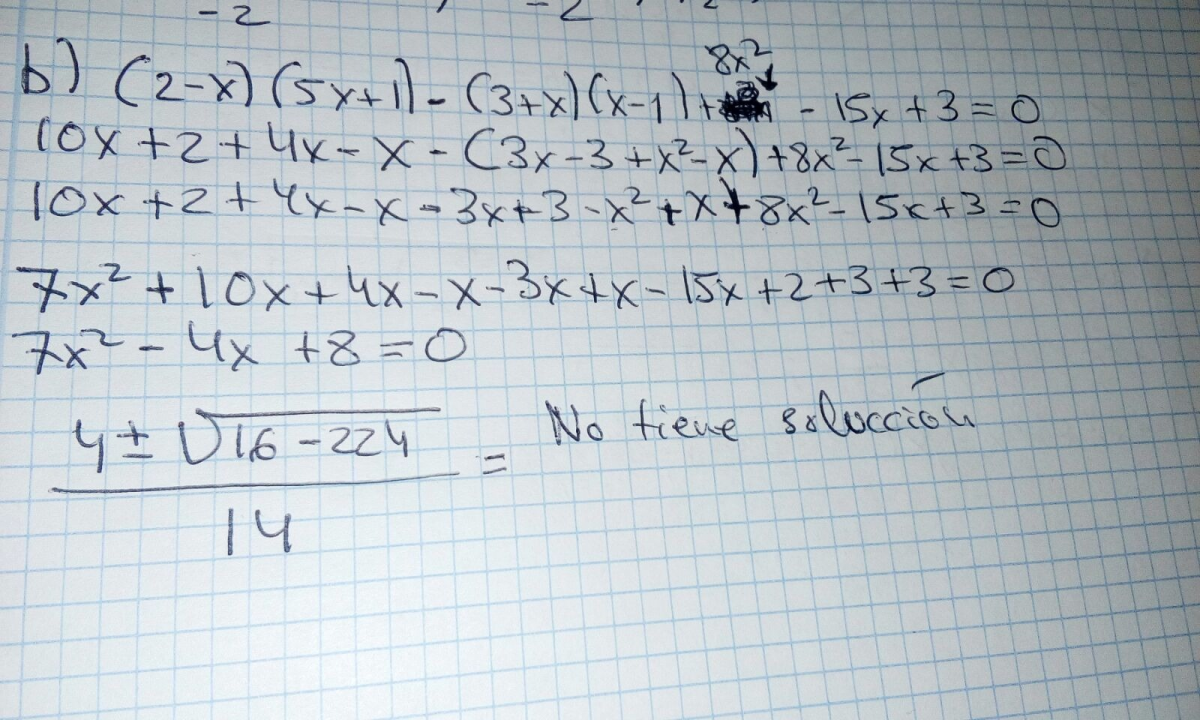 -2 , -2
b) (2-x)(5x+1)-(3+x)(x-1)+8x² - 15x+3=0
10x+2+4x-x-(3x-3+x²-x)+8x²-15x+3=0
10x+2+4x-x-3x+3-x²+x+8x²-15x+3=0
7x²+10x+4x-x-3x+x-15x+2+3+3=0
7x²-4x+8=0
4±√16-224 / 14 = No tiene solucción